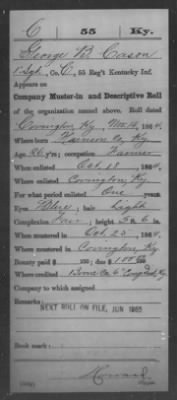 C 55 Ky.
George B. Cason
1 Sgt, Co. C, 55 Reg't Kentucky Inf.
Appears on
Company Muster-in and Descriptive Roll
of the organization named above. Roll dated
Covington, Ky, Nov. 14, 1864.
Where born Harrison Co. Ky
Age 26 y'rs; occupation Farmer
When enlisted Oct. 18, 1864.
Where enlisted Covington, Ky
For what period enlisted One years.
Eyes Blue; hair Light
Complexion Fair; height 5 ft. 6 in.
When mustered in Oct. 25, 1864.
Where mustered in Covington, Ky
Bounty paid $ 100; due $ 100
Where credited Boone Co. 6" Cong. Dist. Ky
Company to which assigned
Remarks:
NEXT ROLL ON FILE, JUN 1865
Book mark:
Howard